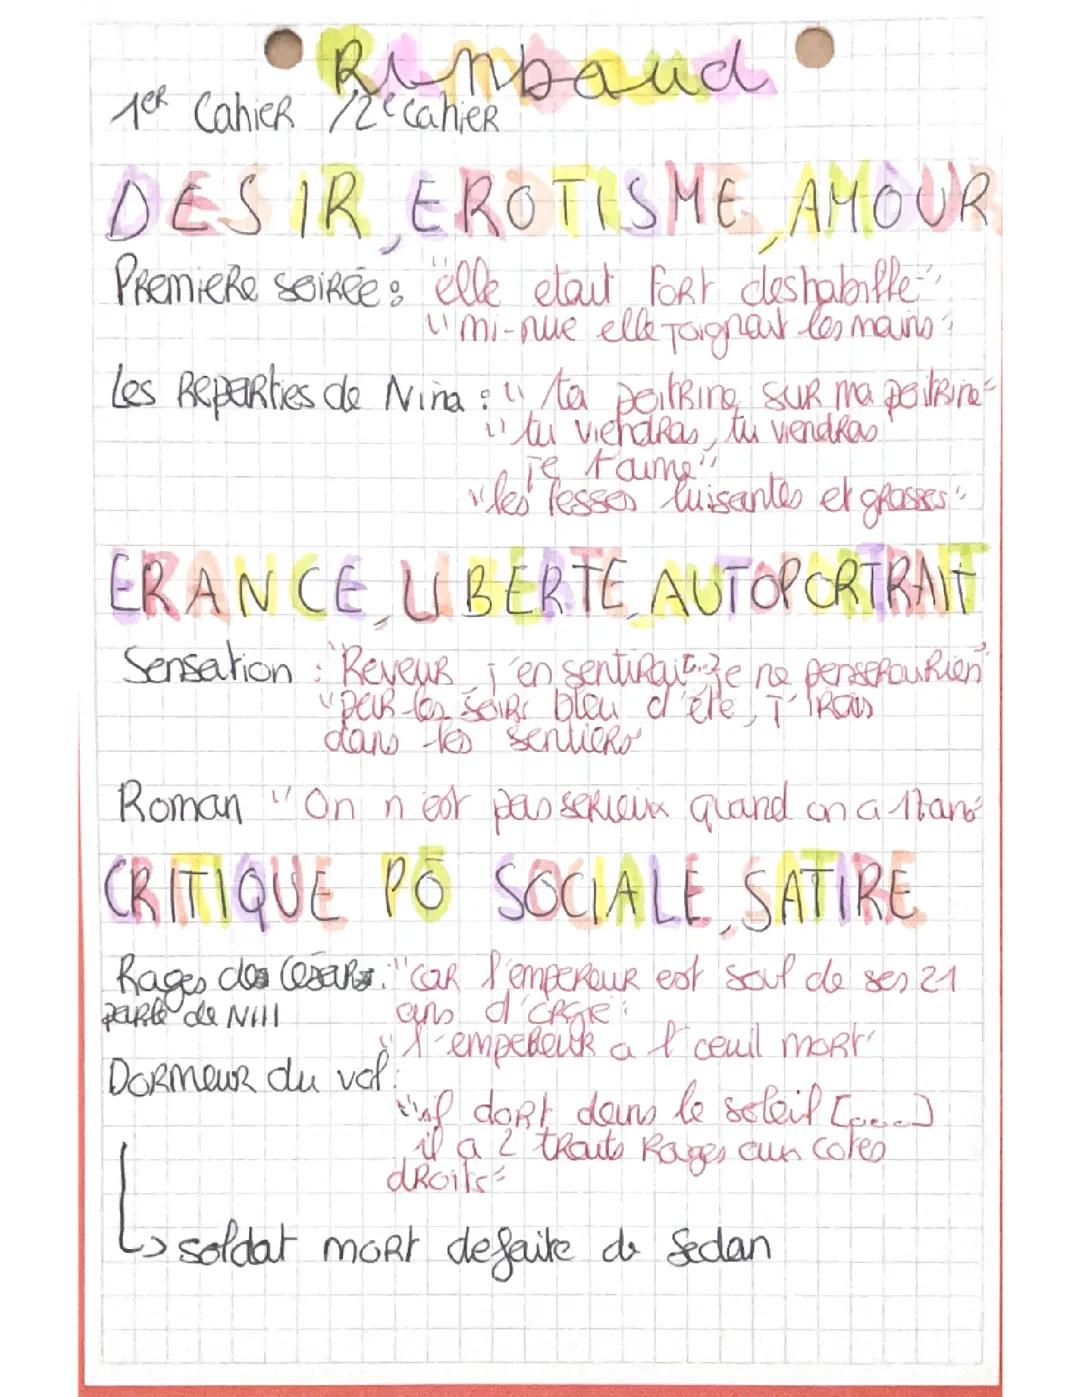 Rimbaud
1ER CahiER /2e CahiER
DESIR, EROTISME, AMOUR
PREMIERE SOIRÉE : "elle etait FORT deshabille"
"mi-nue elle joignait les mains"
Les RepaRties de Nina : "ta poitRine SUR ma poitRine"
"tu viendRas, tu viendRas
je t'aime"
"les fesses luisantes et gRasses"
ERANCE, LIBERTE, AUTOPORTRAIT
Sensation : "ReveuR j'en sentiRait... Je ne penseRai Rien"
"paR les soiRs bleu d'été, j'iRais
dans les sentieRs"
Roman "On n'est pas seRieux quand on a 17ans"
CRITIQUE PO SOCIALE, SATIRE
Rages des CesaRs : "caR l'empeReuR est soul de ses 21
paRle de NIII
ans d'orgie"
"l'empeReuR a l'oeuil moRt"
DoRmeuR du val :
"il doRt dans le soleil [....]
il a 2 tRouts Rages aux cotes
dRoits"
↳ soldat moRt defaite de Sedan